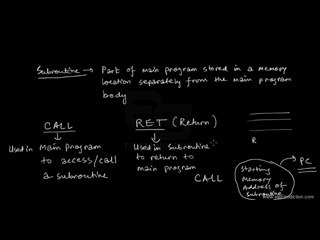 Subroutine → Part of main program stored in a memory
location separately from the main program
body
CALL
Used in Main Program
to access/call
a subroutine
RET (Return)
Used in Subroutine
to return to
main program
CALL
R
PC
Starting
Memory
Address of
Subroutine